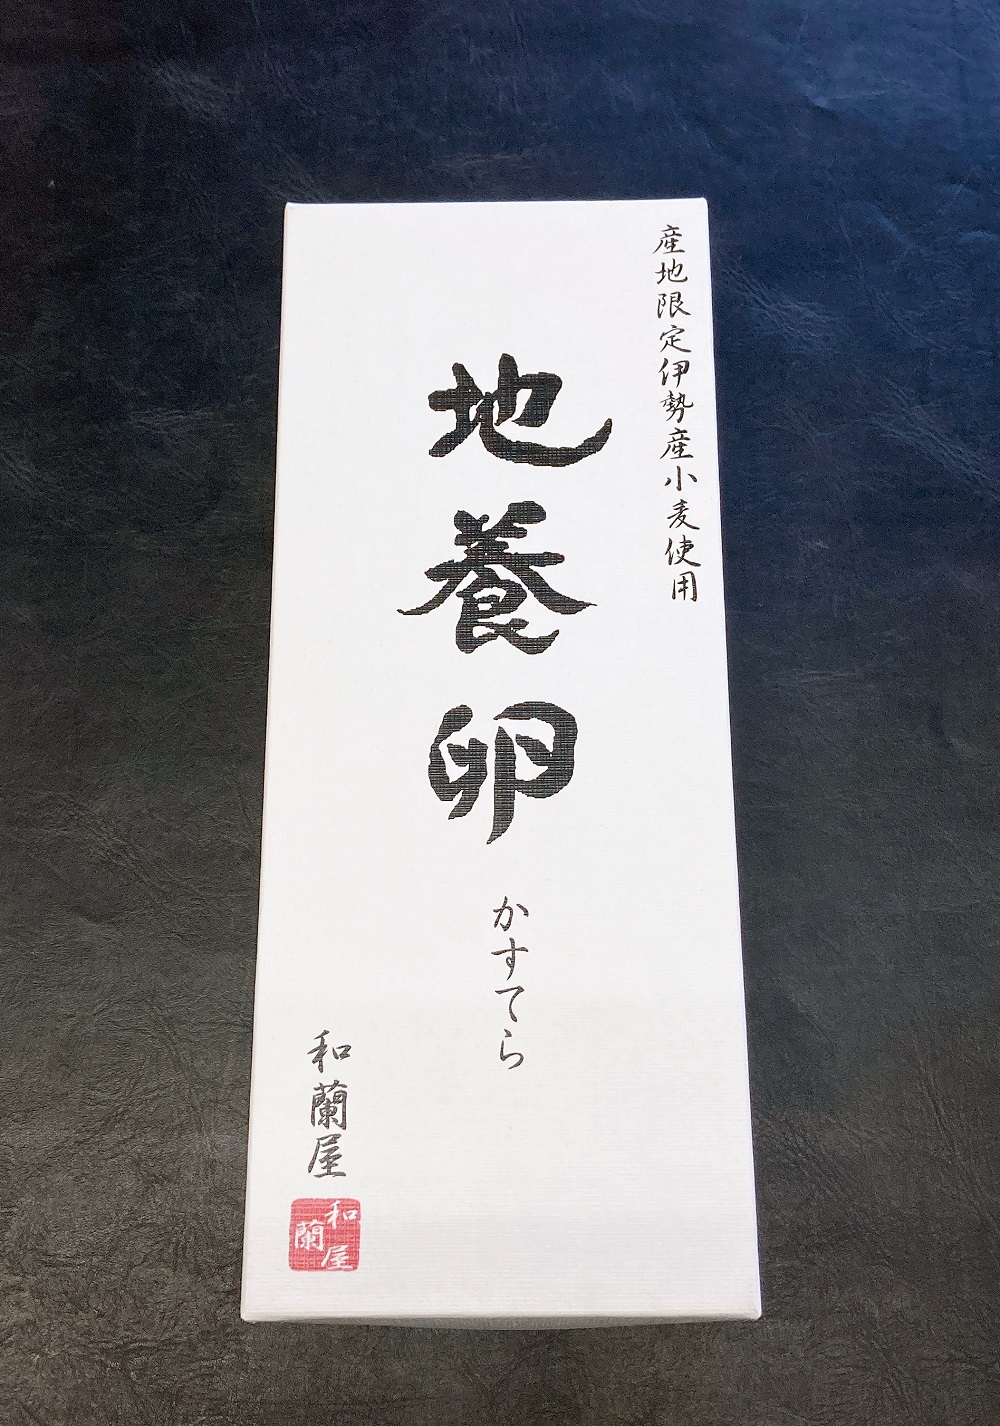 産地限定伊勢産小麦使用
地養卵
かすてら
和蘭屋
和蘭屋